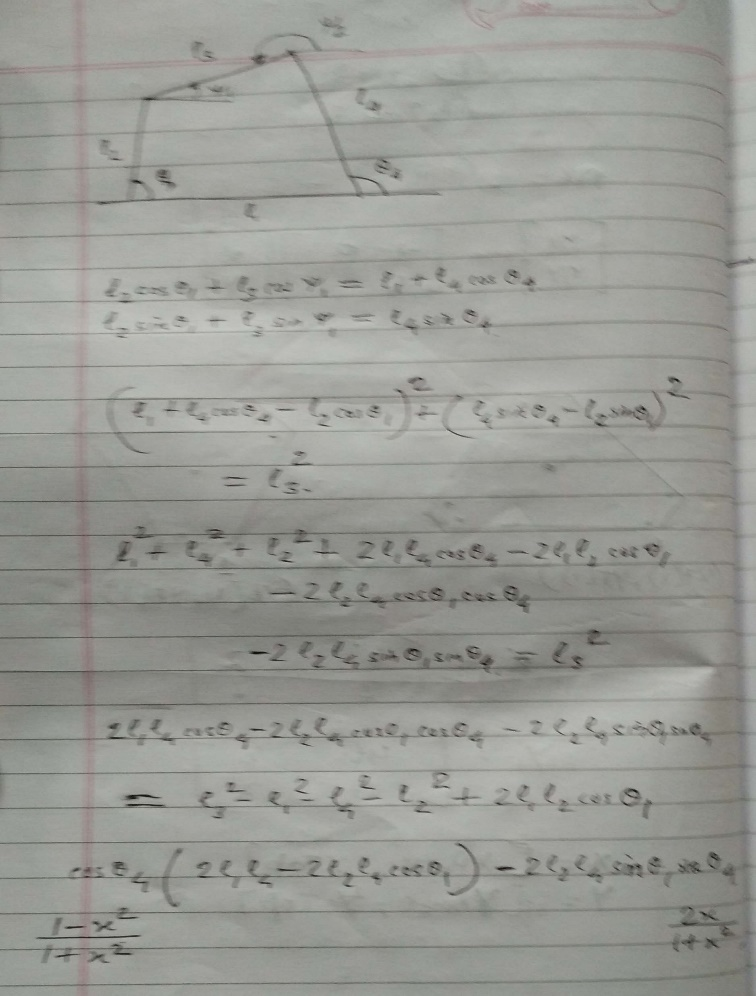 l₃
l₂
l₄
θ₄
l₂cosθ₁ + l₃cosψ₁ = l₁ + l₄cosθ₄
l₂sinθ₁ + l₃sinψ₁ = l₄sinθ₄
(l₁ + l₄cosθ₄ - l₂cosθ₁)² + (l₄sinθ₄ - l₂sinθ₁)²
= l₃².
l₁² + l₄² + l₂² + 2l₁l₄cosθ₄ - 2l₁l₂cosθ₁
- 2l₂l₄cosθ₁cosθ₄
- 2l₂l₄sinθ₁sinθ₄ = l₃²
2l₁l₄cosθ₄ - 2l₂l₄cosθ₁cosθ₄ - 2l₂l₄sinθ₁sinθ₄
= l₃² - l₁² - l₄² - l₂² + 2l₁l₂cosθ₁
cosθ₄(2l₁l₄ - 2l₂l₄cosθ₁) - 2l₂l₄sinθ₁sinθ₄
1-x² 2x
1+x² 1+x²